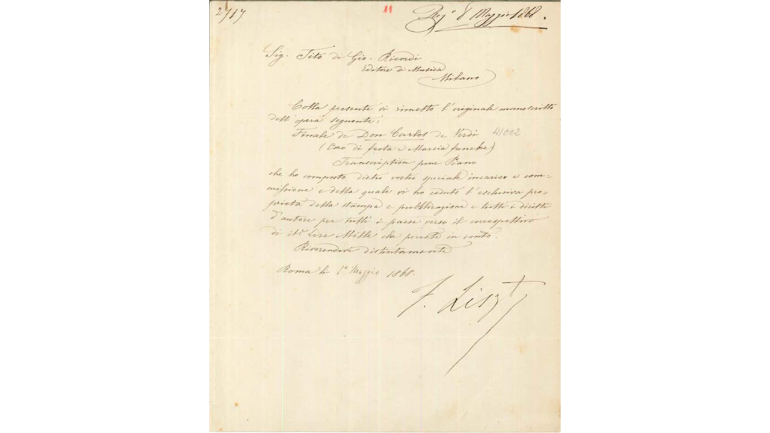 2717
11
8 Maggio 1868.
Sig. Tito di Gio. Ricordi
Editore di Musica
Milano
Colla presente vi rimetto l'originale manoscritto
dell'opera seguente:
Finale de Don Carlos de Verdi 41002
(Coro di festa e Marcia funebre)
Transcription pour Piano
che ho composto dietro vostro speciale incarico e com-
missione e della quale vi ho ceduto l'esclusiva pro-
prietà della stampa e pubblicazione e tutti i diritti
d'autore per tutti i paesi verso il corrispettivo
di it. Lire Mille che ponete in conto.
Riverendovi distintamente
Roma li 1° Maggio 1868.
F. Liszt